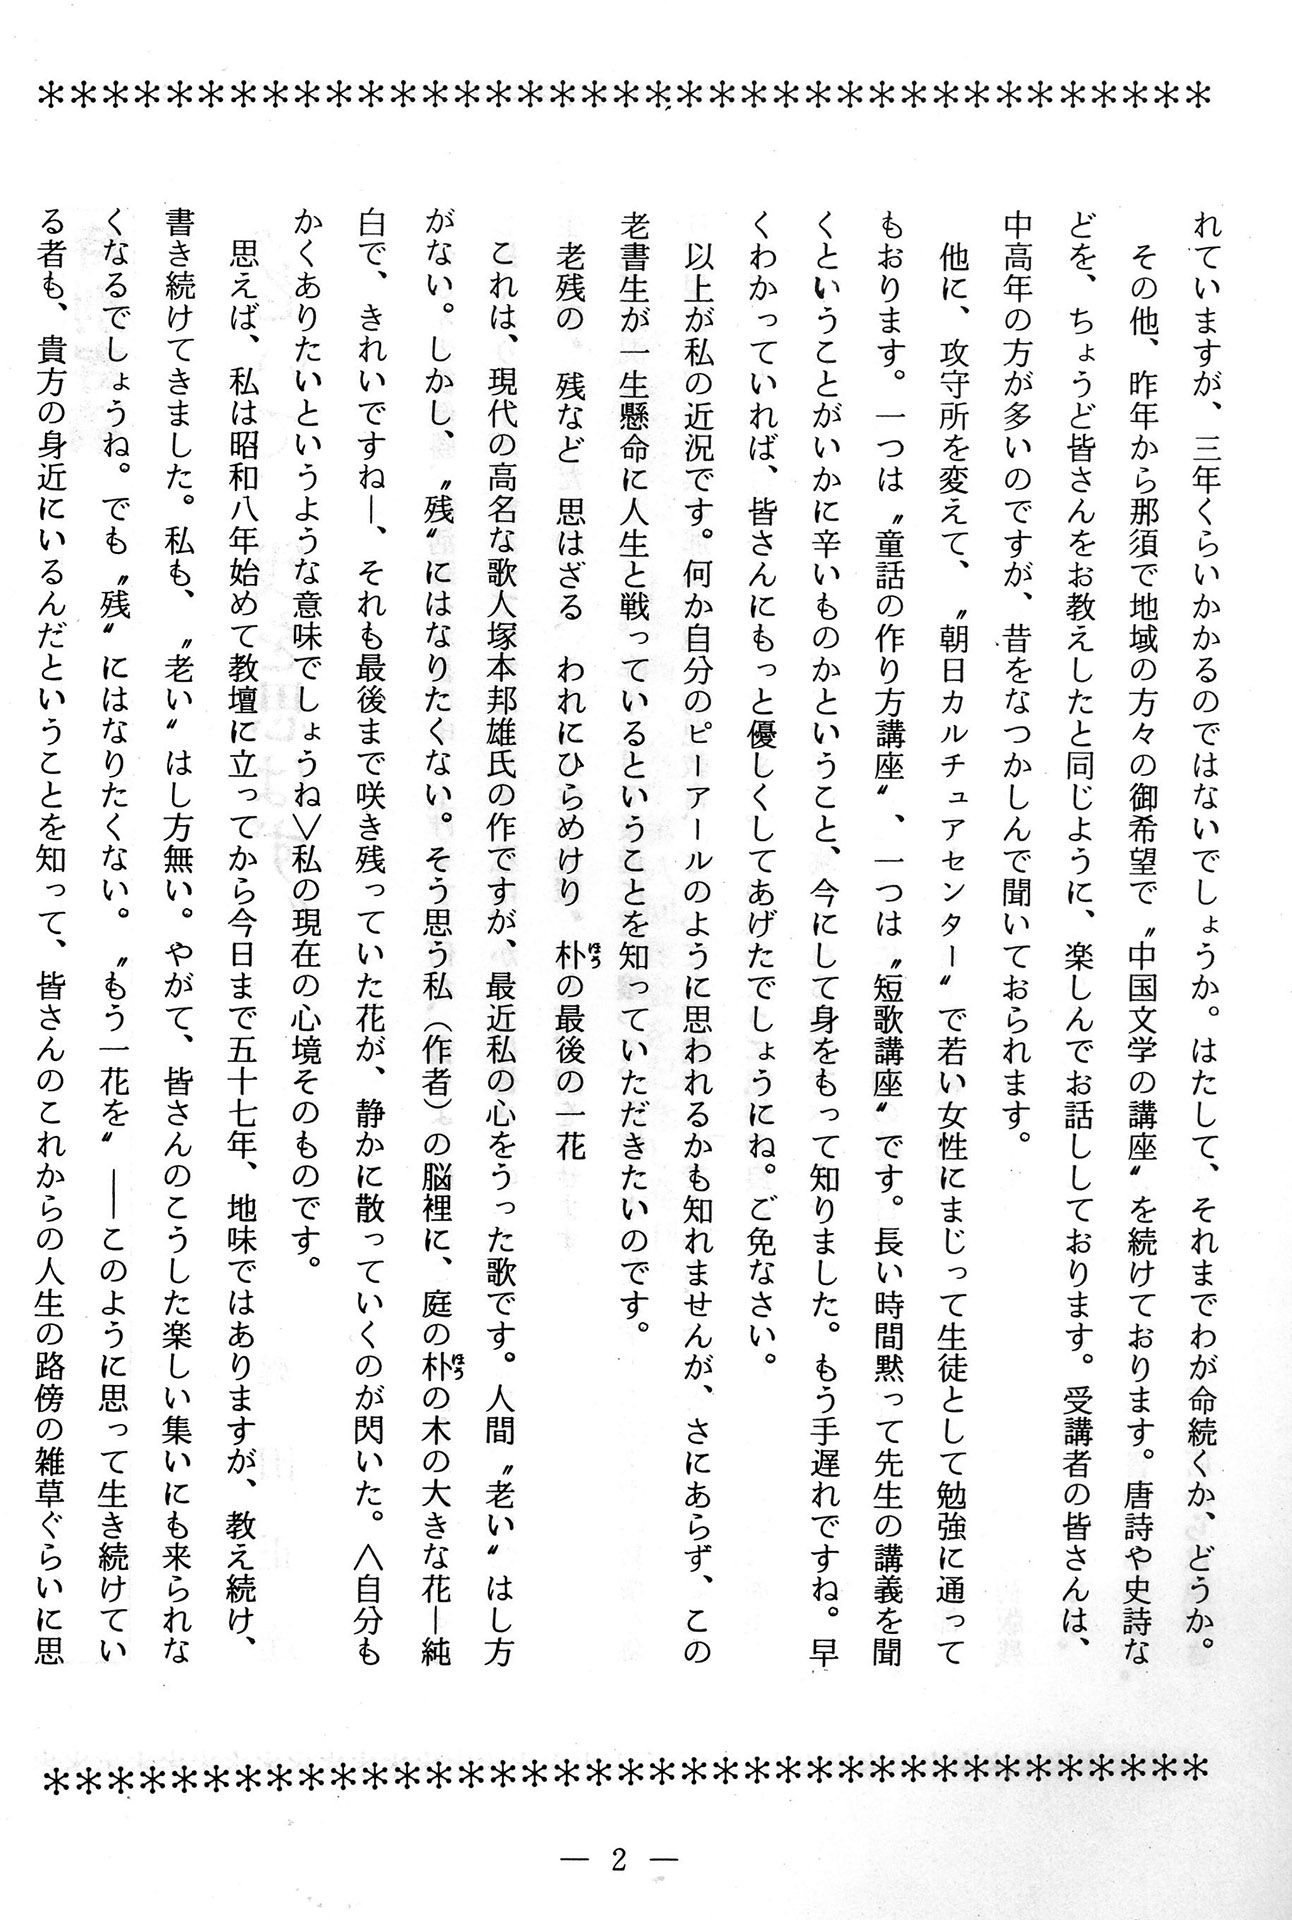 れていますが、三年くらいかかるのではないでしょうか。はたして、それまでわが命続くか、どうか。
その他、昨年から那須で地域の方々の御希望で〝中国文学の講座〟を続けております。唐詩や史詩な
どを、ちょうど皆さんをお教えしたと同じように、楽しんでお話ししております。受講者の皆さんは、
中高年の方が多いのですが、昔をなつかしんで聞いておられます。
他に、攻守所を変えて、〝朝日カルチュアセンター〟で若い女性にまじって生徒として勉強に通って
もおります。一つは〝童話の作り方講座〟、一つは〝短歌講座〟です。長い時間黙って先生の講義を聞
くということがいかに辛いものかということ、今にして身をもって知りました。もう手遅れですね。早
くわかっていれば、皆さんにもっと優しくしてあげたでしょうにね。ご免なさい。
以上が私の近況です。何か自分のピーアールのように思われるかも知れませんが、さにあらず、この
老書生が一生懸命に人生と戦っているということを知っていただきたいのです。
老残の　残など　思はざる　われにひらめけり　朴ほうの最後の一花
これは、現代の高名な歌人塚本邦雄氏の作ですが、最近私の心をうった歌です。人間〝老い〟はし方
がない。しかし、〝残〟にはなりたくない。そう思う私（作者）の脳裡に、庭の朴ほうの木の大きな花―純
白で、きれいですね―、それも最後まで咲き残っていた花が、静かに散っていくのが閃いた。＜自分も
かくありたいというような意味でしょうね＞私の現在の心境そのものです。
思えば、私は昭和八年始めて教壇に立ってから今日まで五十七年、地味ではありますが、教え続け、
書き続けてきました。私も、〝老い〟はし方無い。やがて、皆さんのこうした楽しい集いにも来られな
くなるでしょうね。でも〝残〟にはなりたくない。〝もう一花を〟――このように思って生き続けてい
る者も、貴方の身近にいるんだということを知って、皆さんのこれからの人生の路傍の雑草ぐらいに思
― 2 ―